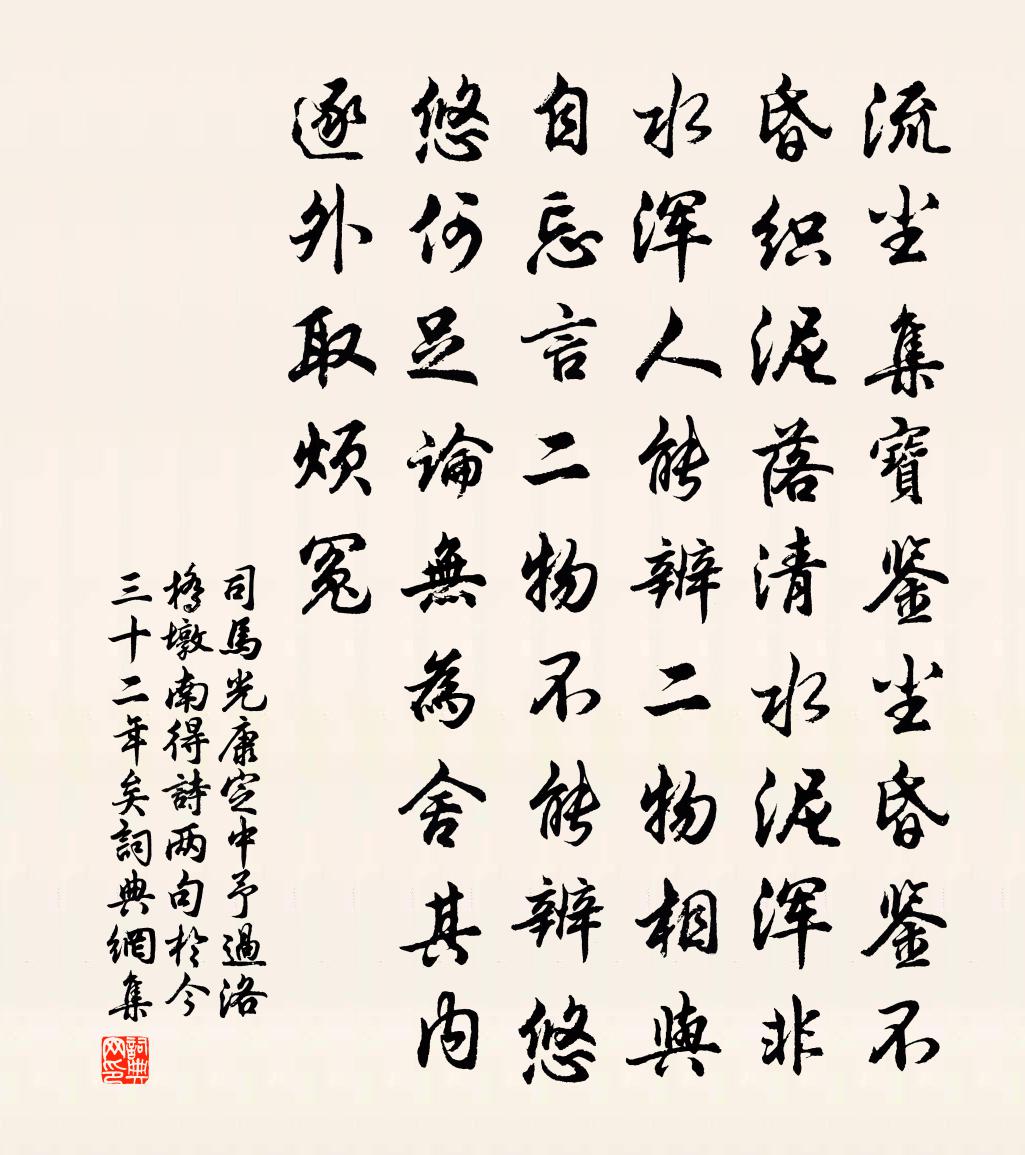 流尘集寶鉴尘昏鉴不
昏织泥落清水泥浑非
水浑人能辨二物相與
自忘言二物不能辨悠
悠何足論無為舍其内
逐外取烦冤
司馬光康定中予過洛
橋墩南得詩两句於今
三十二年矣詞典網集
詞典网印